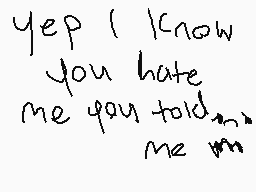 yep I know
you hate
me you told...
me m